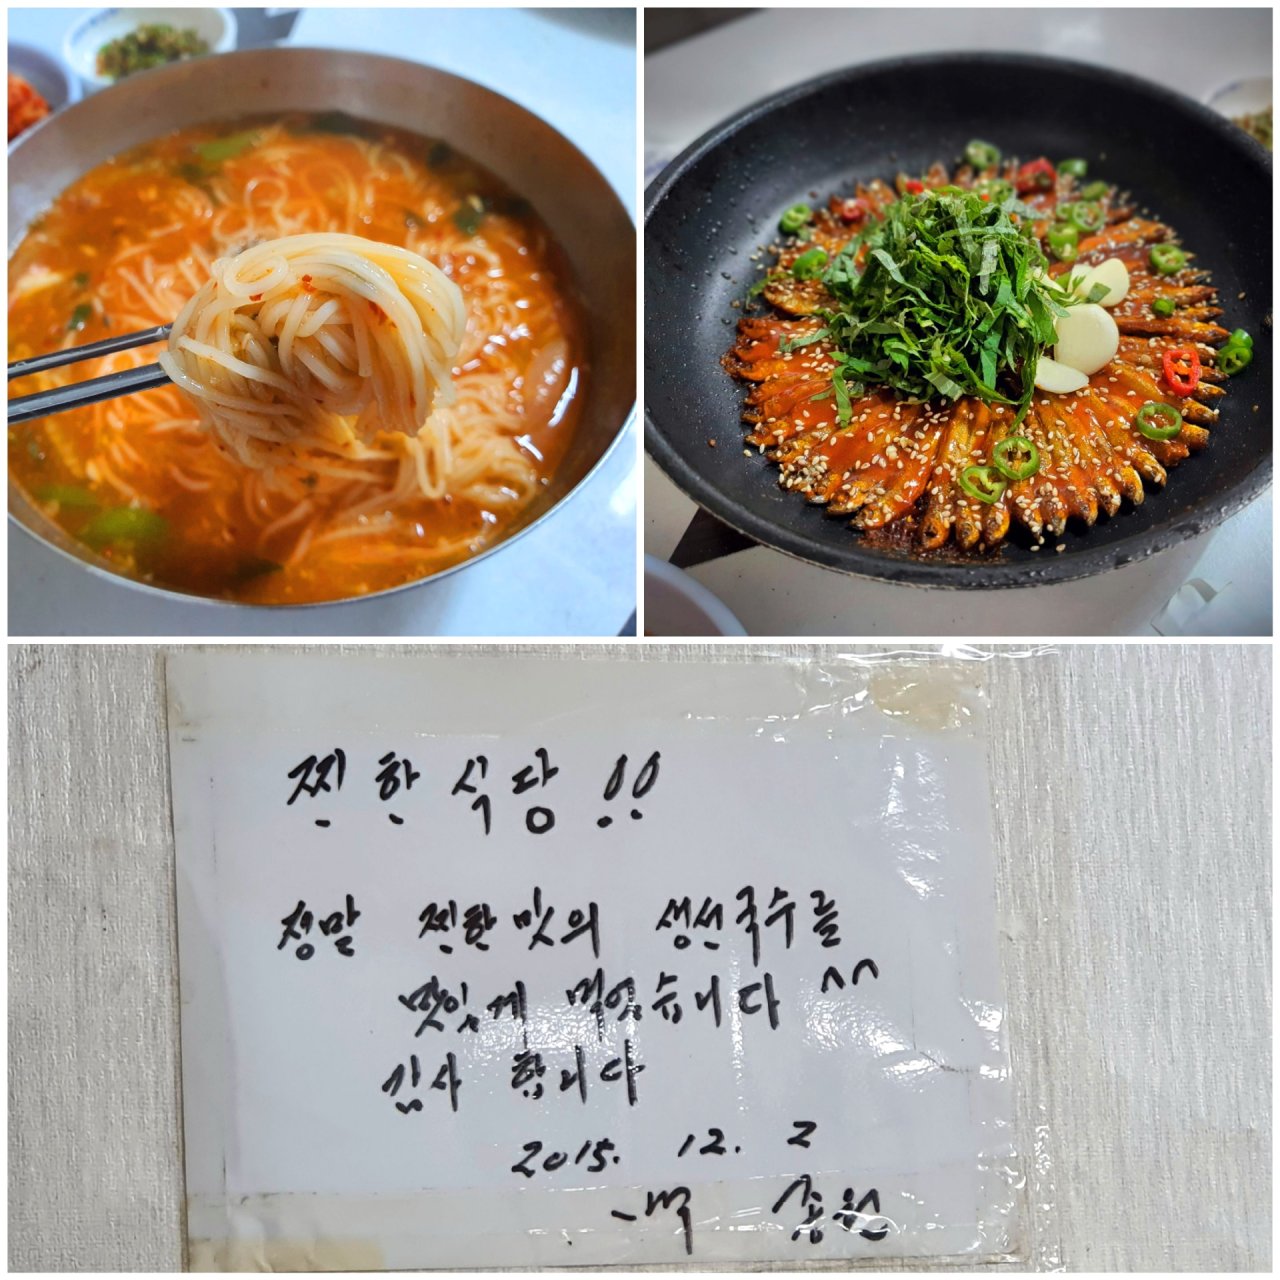 찐한식당!!
정말 찐한맛의 생선국수를
맛있게 먹었습니다 ^^
감사 합니다
2015. 12. 2